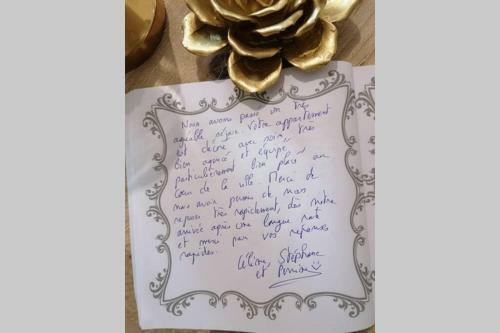 Nous avons passé un très
agréable séjour. Votre appartement
est décoré avec soin, très
bien agencé et équipé,
particulièrement bien placé au
cœur de la ville. Merci de
nous avoir permis de nous
reposer très rapidement, dès notre
arrivée après une longue route
et merci pour vos réponses
rapides.
Céline, Stéphane
et Perrine